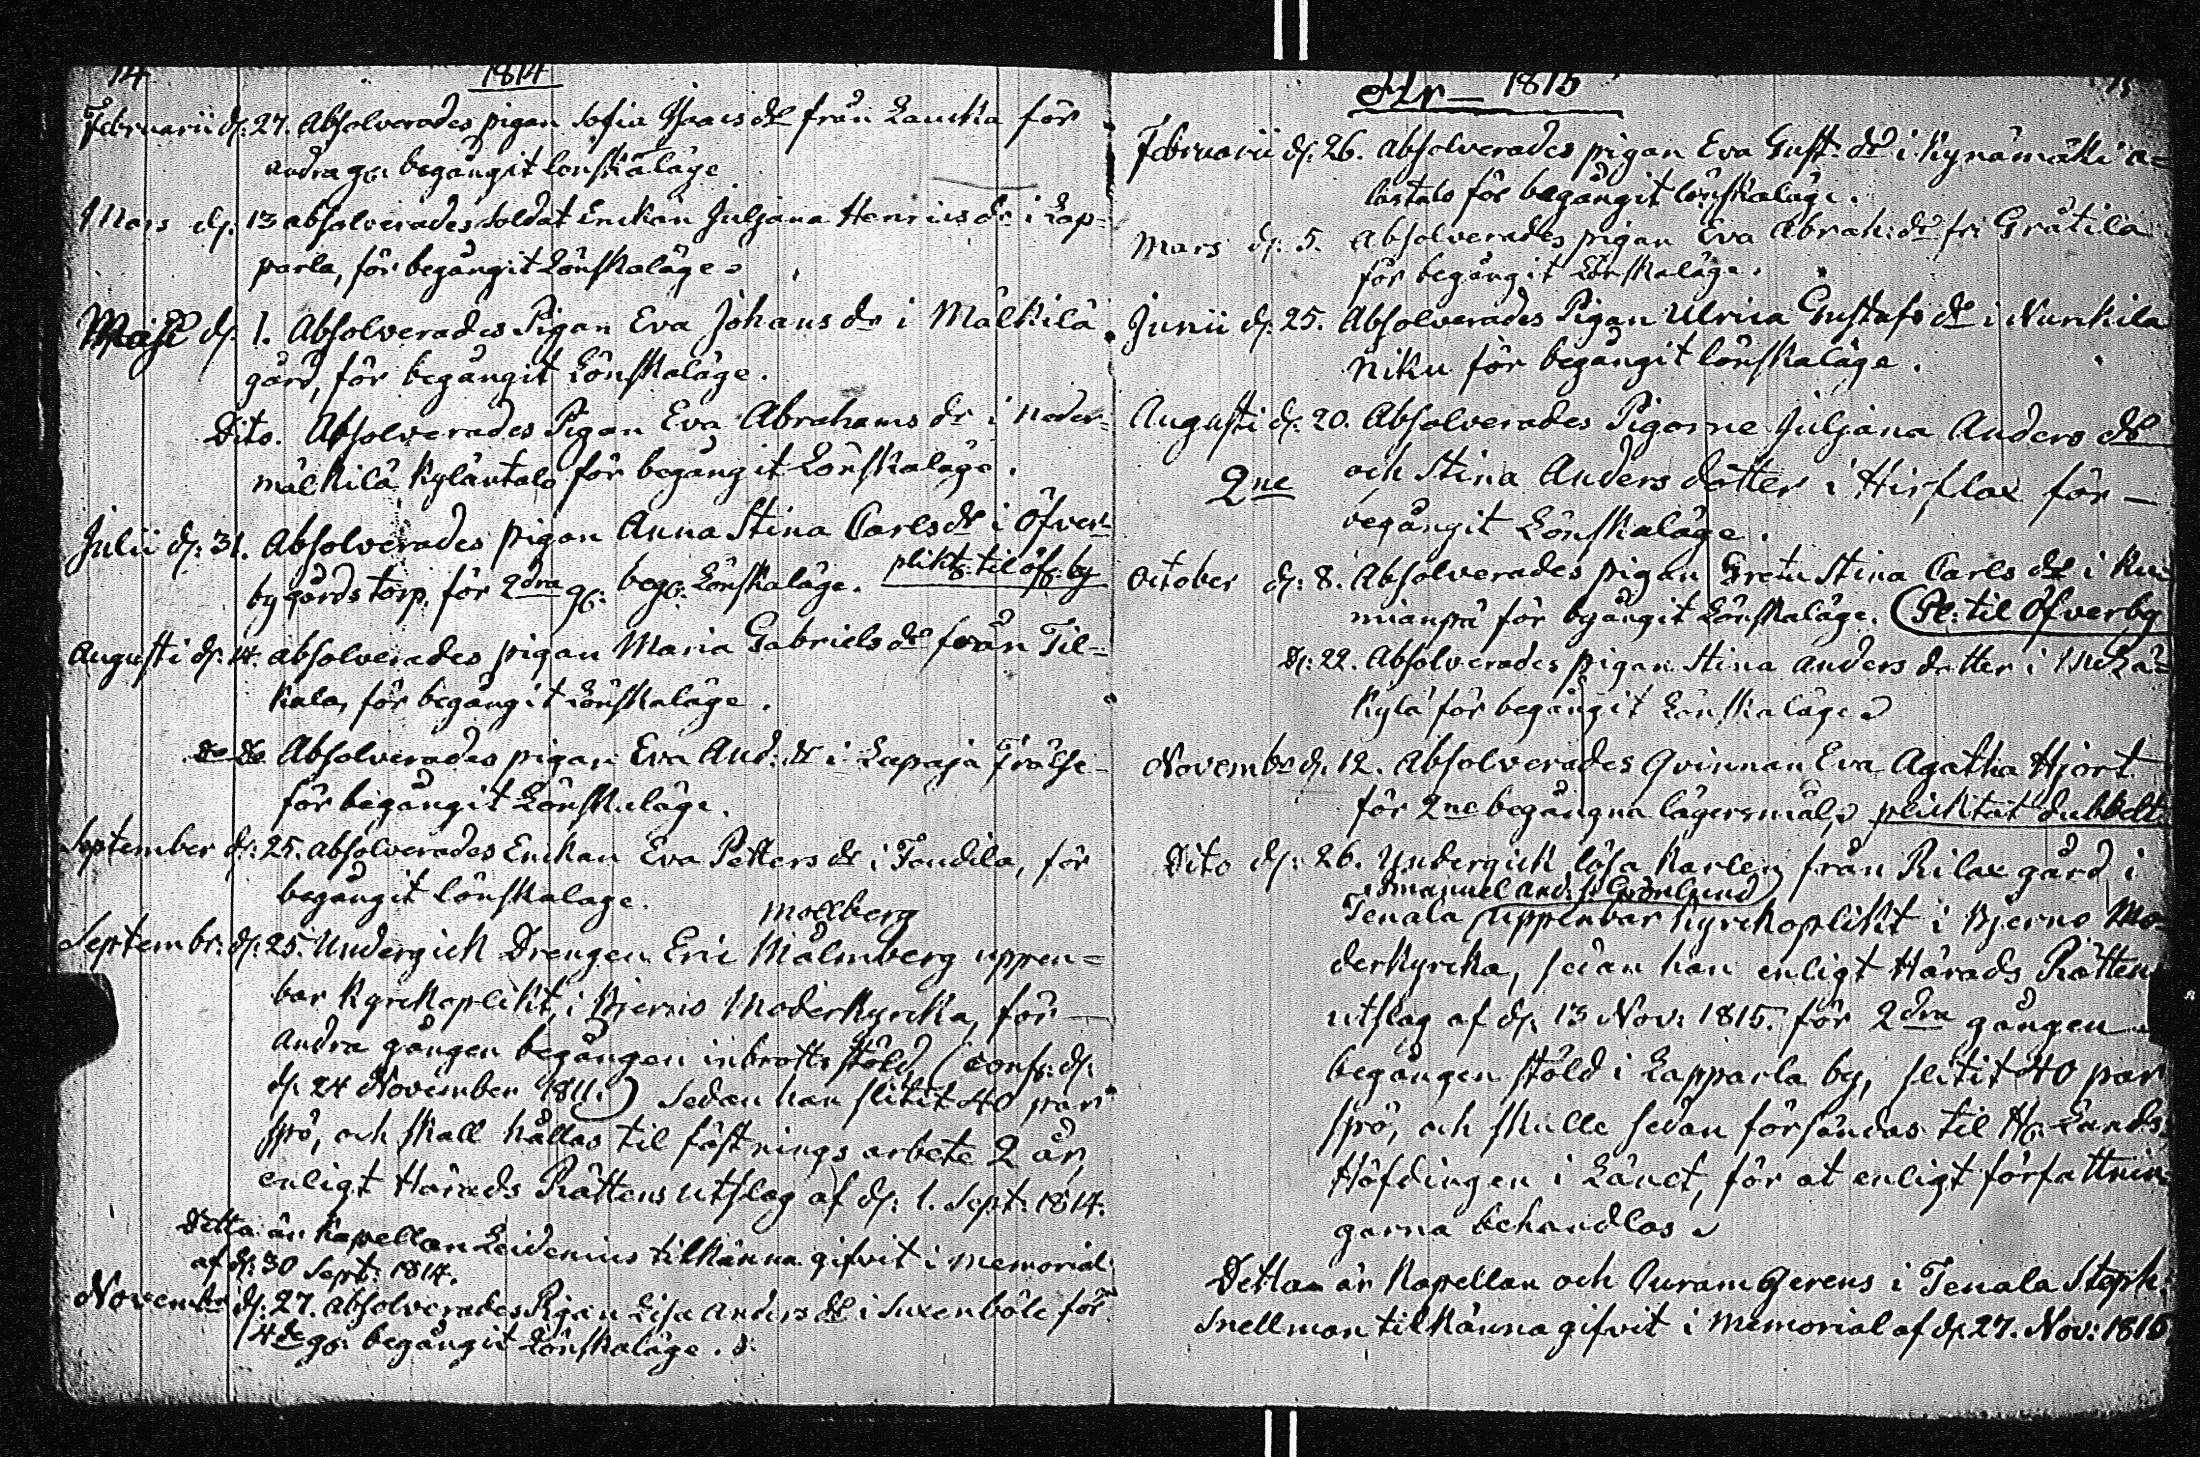 14
1814
Februarii d: 27. Absolverades pigan Sofia Isaacs dr från Lanska för
andra gg: begångit lönskaläge
Mars d: 13 absolverades Soldat Enckan Juljana Henricsdr i Lap-
parla, för begångit Lönskaläge.
Maji d: 1. Absolverades Pigan Eva Johans dr i Mälkilä
gård, för begångit Lönskaläge.
Dito. Absolverades Pigan Eva Abrahams dr i Neder-
mälkilä Kyläntalo för begångit Lönskaläge.
Julii d: 31. Absolverades pigan Anna Stina Carlsdr i Öfver-
by gårds torp, för 2dra gg: begg: Lönskaläge. plikts: til öf: by
Augusti d: 14. absolverades pigan Maria Gabriels dr från Til-
kala, för begångit Lönskaläge.
do do Absolverades pigan Eva And: dr i Lapaja Frälse
för begångit Lönskaläge.
September d: 25. absolverades Enckan Eva Petters dr i Tandila, för
begångit lönskalage.
Mollberg
Septembr: d: 25. Undergick Drengen Eric Malmberg uppen=
bar kyrckoplikt, i Bjerno Moderkyrcka, för
andra gången begången inbrotts stöld, (conf: d:
d: 24 November 1811.) Sedan han slitit 40 par
spö, och skall hållas til fästnings arbete 2 år,
enligt Härads Rättens utslag af d: 1. Sept: 1814.
Detta är Kapellan Leidenius tilkänna gifvit i memorial
af d: 30 Sept: 1814.
Novembr d: 27. absolverades Pigan Lisa Anders dr i Suxenböle för
4de gg: begångit Lönskaläge.
15
År 1815
Februarii d: 26. absolverades pigan Eva Gust: dr i Kynämäki a=
lastalo för begångit lönskaläge.
Mars d: 5. Absolverades pigan Eva Abrah: dr fr: Gråtila
för begångit Lönskaläge.
Junii d: 25. Absolverades Pigan Ulrica Gustafs dr i Nurckila
Niku för begångit lönskaläge.
Augusti d: 20. Absolverades Pigorne Juljana Anders dr
2ne och Stina Anders dotter i Hirslax för
begångit Lönskaläge.
October d: 8. Absolverades pigan Greta Stina Carls dr i Ku-
mianpä för bgångit Lönskaläge. (Pl: til Öfverby
D: 22. Absolverades pigan Stina anders dotter i
Kylä för begångit Lönskaläge
Novembr d: 12. Absolverades Qvinnan Eva Agatha Hjort
för 2ne begångna lägersmål, plicktat dubbelt
Dito d: 26. Undergick lösa Karlen från Rilax gård i
Emanuel And: s: Grönlund
Tenala uppenbar Kyrckoplikt i Bjerno Mo-
derkyrcka, sedan han enligt Härads Rättens
utslag af d: 13 Nov: 1815. för 2dra gången
begången stöld i Lapparla by, slitit 40 par
spö, och skulle sedan försändas til Hr: Lands
Höfdingen i Länet, för at enligt författnin-
garna behandlas
Detta är Kapellan och Curam Gerens i Tenala Steph:
Snellman tilkänna gifvit i Memorial af d: 27. Nov: 1815